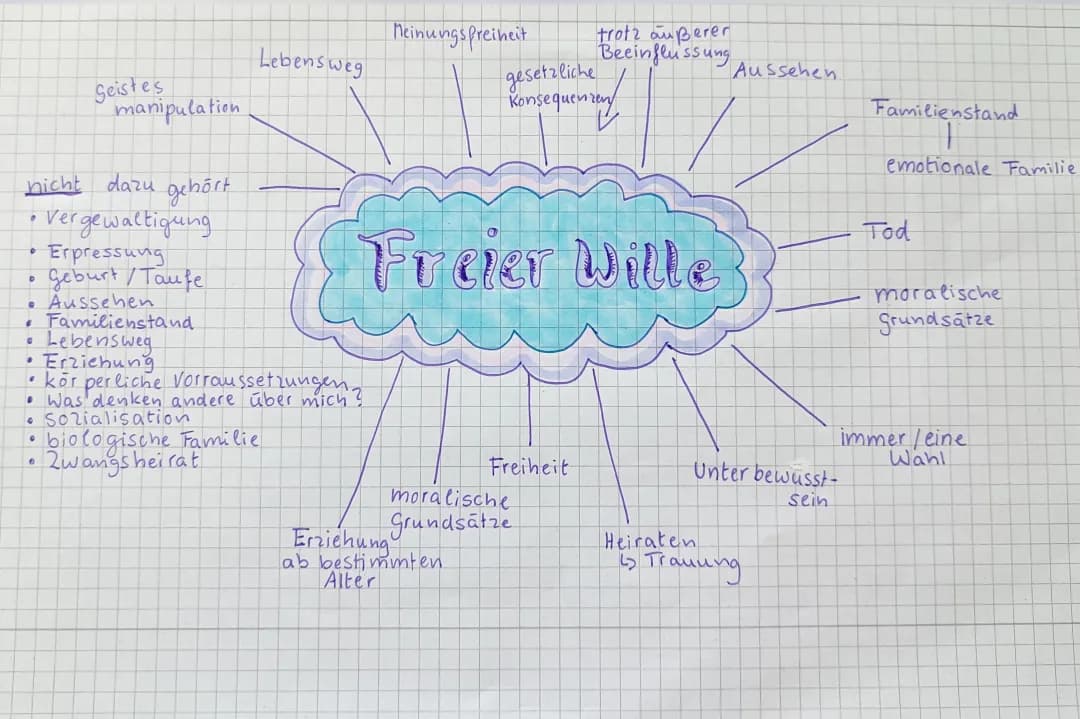 Meinungsfreiheit
trotz äußerer
Beeinflussung
Lebensweg
gesetzliche
Konsequenzen
Aussehen
Geistes
manipulation
Familienstand
emotionale Familie
nicht dazu gehört
• Vergewaltigung
• Erpressung
• Geburt / Taufe
• Aussehen
• Familienstand
• Lebensweg
• Erziehung
• körperliche Vorraussetzungen
• Was denken andere über mich?
• Sozialisation
• biologische Familie
• Zwangsheirat
Freier Wille
Tod
moralische
Grundsätze
immer / eine
Wahl
Unterbewusst-
sein
Freiheit
moralische
Grundsätze
Erziehung
ab bestimmten
Alter
Heiraten
↳ Trauung